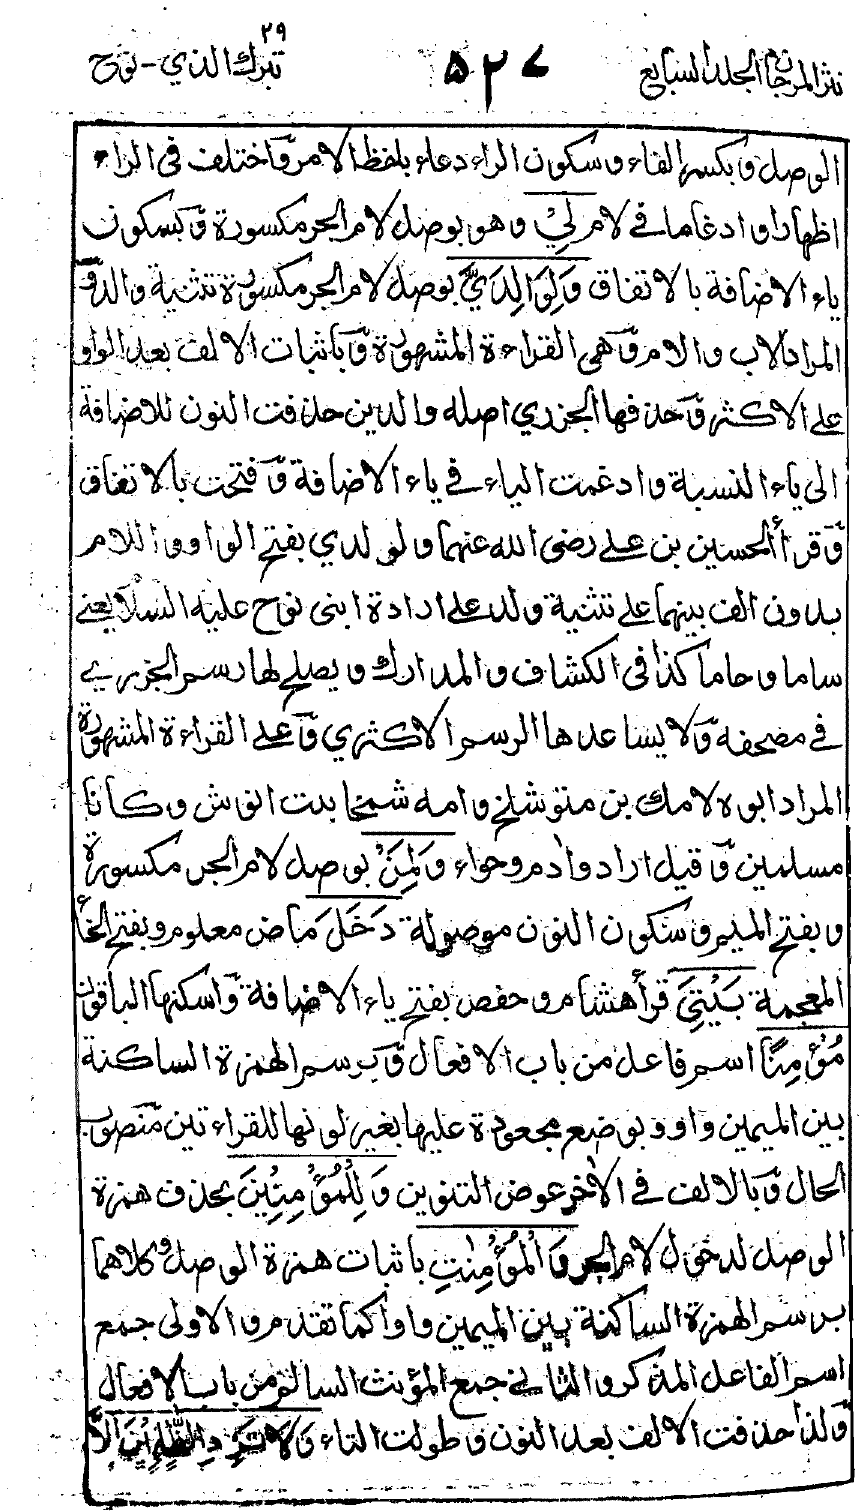 نثر المرجان الجلد السابع
۵۲۷
۲۹
تبرك الذي - نوح
الوصل وبكسر الفاء وسكون الراء دعاء بلفظ الامر واختلف فى الراء
اظهارا وادغاما في لام لِيْ وهو بوصل لام الجر مكسورة وبسكون
ياء الاضافة بالاتفاق وَلِوَالِدَيَّ بوصل لام الجر مكسورة تثنية والد و
المراد الاب والام وهى القراءة المشهورة وباثبات الالف بعد الواو
على الاكثر وحذفها الجزري اصله والدين حذفت النون للاضافة
الى ياء النسبة وادغمت الياء في ياء الاضافة وفتحت بالاتفاق
وقرأ الحسين بن على رضى الله عنهما ولولدي بفتح الواو واللام
بدون الف بينهما على تثنية ولد على ارادة ابنى نوح عليه السلام يعنے
ساما وحاما كذا فى الكشاف والمدارك ويصلح لها رسم الجزري
في مصحفه ولا يساعدها الرسم الاكثري وعلى القراءة المشهورة
المراد ابوه لامك بن متوشلخ وامه شمخا بنت انوش وكانا
مسلمين وقيل اراد ادم وحواء وَلِمَنْ بوصل لام الجر مكسورة
وبفتح الميم وسكون النون موصولة دَخَلَ ماض معلوم وبفتح الخاء
المعجمة بَيْتِيَ قرأ هشام وحفص بفتح ياء الاضافة واسكنها الباقون
مُؤْمِنًا اسم فاعل من باب الافعال وبرسم الهمزة الساكنة
بين الميمين واوو بوضع مجعودة عليها بغير لونها للقراءتين منصوب
الحال وبالالف في الاخر عوض التنوين وَلِلْمُؤْمِنِيْنَ بحذف همزة
الوصل لدخول لام الجر وَالْمُؤْمِنٰتِ باثبات همزة الوصل وكلاهما
برسم الهمزة الساكنة بين الميمين واوا كما تقدم والاولى جمع
اسم الفاعل المذكر والثاني جمع المؤنث السالم من باب الافعال
ولذا حذفت الالف بعد النون وطولت التاء وَلَا تَزِدِ الظّٰلِمِيْنَ اِلَّا